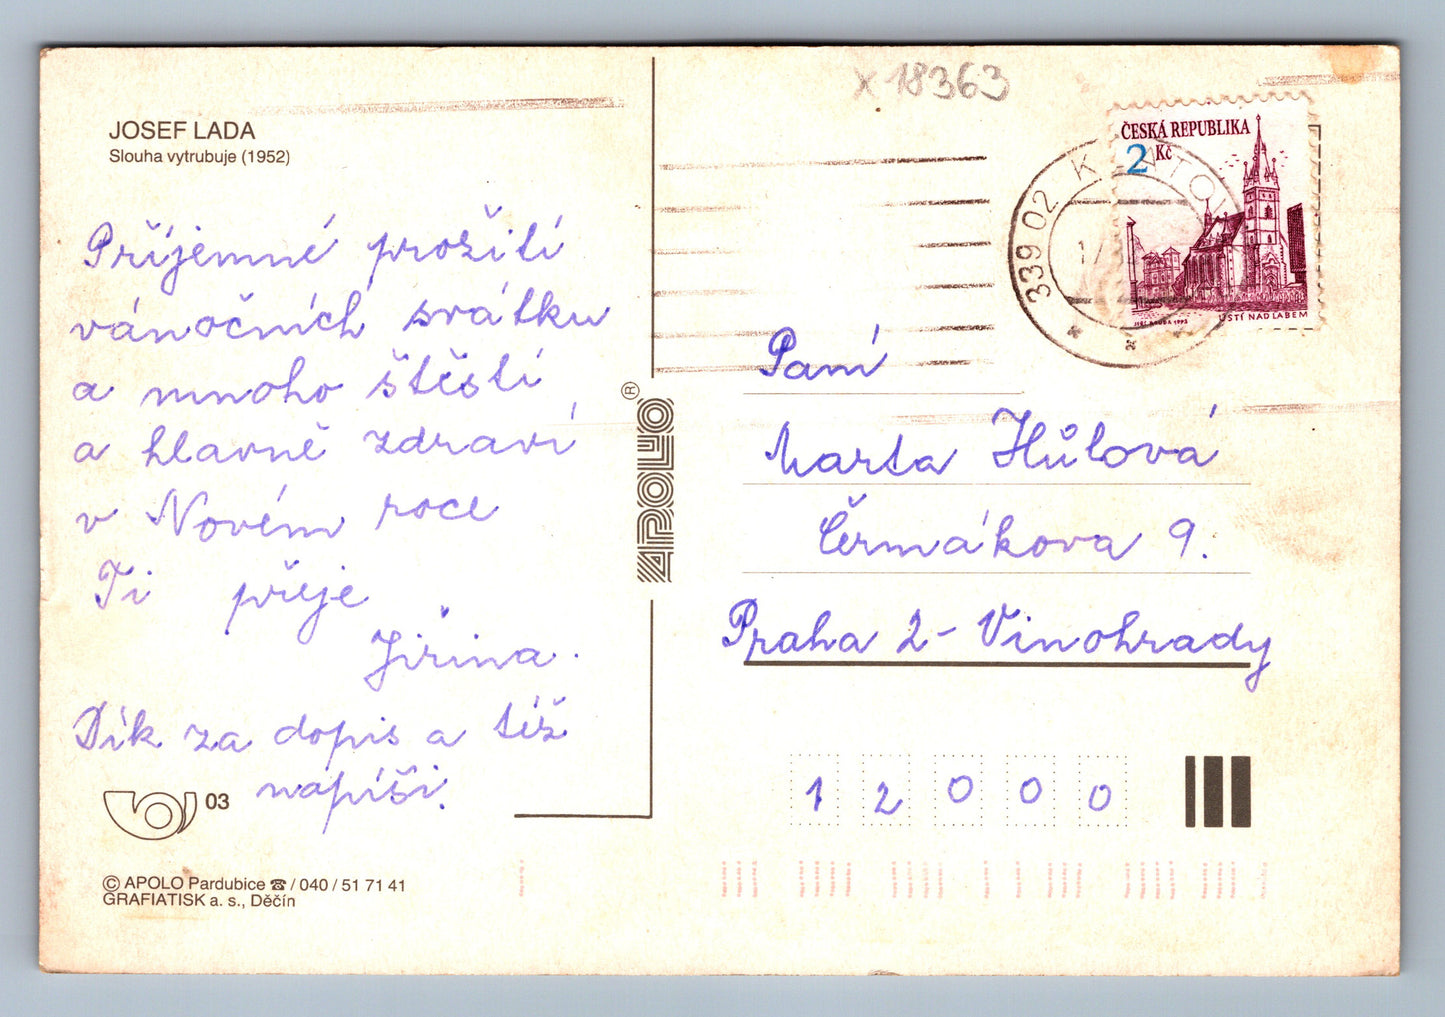 x 18363
JOSEF LADA
Slouha vytrubuje (1952)
Příjemné prožití
vánočních svátku
a mnoho štěstí
a hlavně zdraví
v Novém roce
Ti přeje
Jiřina.
Dík za dopis a též
napíši.
03
© APOLO Pardubice ☎ / 040 / 51 71 41
GRAFIATISK a. s., Děčín
APOLO ®
ČESKÁ REPUBLIKA
2 Kč
ÚSTÍ NAD LABEM
339 02
Paní
Marta Hůlová
Čermákova 9.
Praha 2 - Vinohrady
1 2 0 0 0